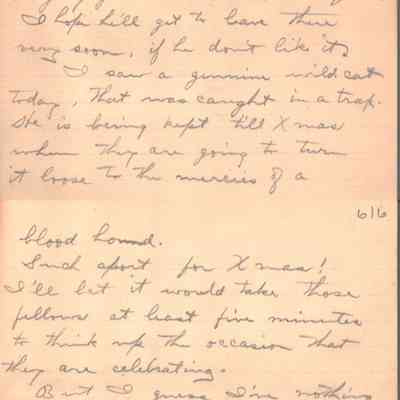 I hope he'll get to leave there
very soon, if he don't like it.
I saw a genuine wild cat
today, that was caught in a trap.
He is being kept till Xmas
when they are going to turn
it loose to the mercies of a
6/6
blood hound.
Such sport for Xmas!
I'll bet it would take those
fellows at least five minutes
to think up the occasion that
they are celebrating.
But I guess I've nothing